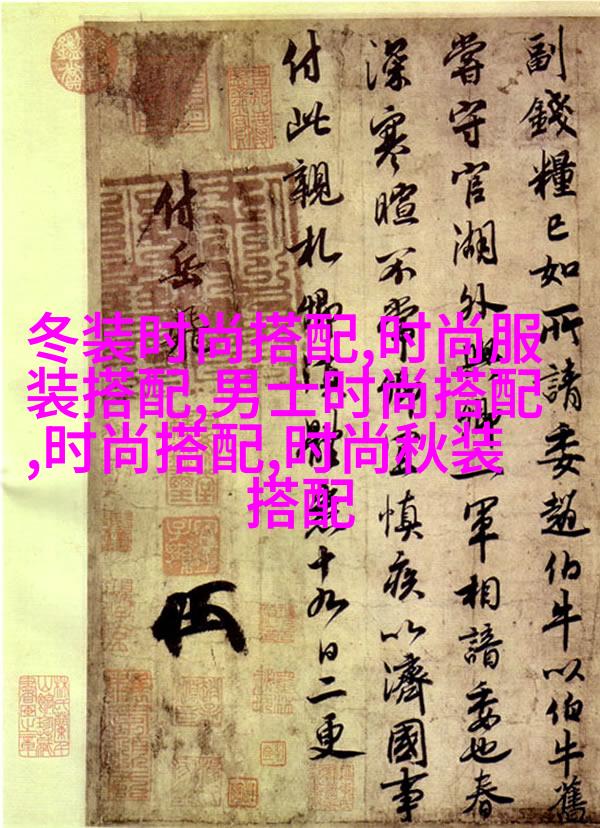 副錢糧已如所請委趙伯牛以伯牛舊
嘗守官湖外與卿一軍相諳委也春
深寒暄不常卿宜慎疾以濟國事
付此親札卿須體悉十九日二更
付岳飛
冬装时尚搭配,时尚服
装搭配,男士时尚搭配
,时尚搭配,时尚秋装
搭配